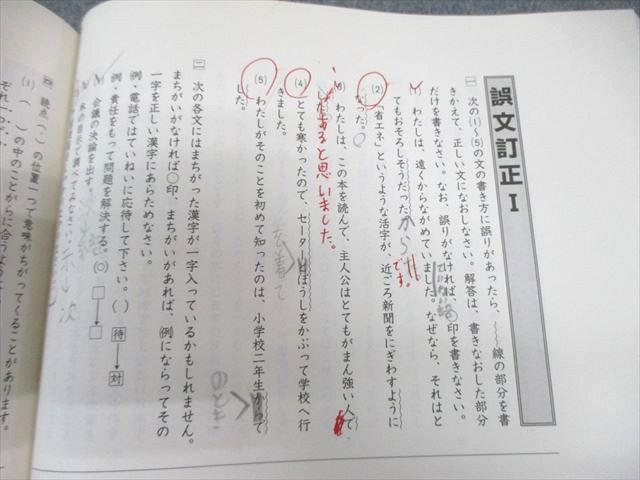 誤文訂正Ⅰ
一 次の(1)〜(5)の文の書き方に誤りがあったら、〰〰線の部分を書
きかえて、正しい文になおしなさい。解答は、書きなおした部分
だけを書きなさい。なお、誤りがなければ○印を書きなさい。
(1) わたしは、遠くからながめていました。なぜなら、それはと
てもおそろしそうだった
からです。
(2) 「省エネ」というような活字が、近ごろ新聞をにぎわすように
なった。
(3) わたしは、この本を読んで、主人公はとてもがまん強い人で、
あると思いました。
(4) とても寒かったので、セーターとぼうしをかぶって学校へ行
きました。
を着て
(5) わたしがそのことを初めて知ったのは、小学校二年生からで
した。
のとき
二 次の各文にはまちがった漢字が一字入っているかもしれません。
まちがいがなければ○印、まちがいがあれば、例にならってその
一字を正しい漢字にあらためなさい。
例・電話ではていねいに応待して下さい。( ) 待→対
例・責任をもって問題を解決する。(○) □→□
会議の決論を出す。
結
四 読点(、)の位置一つで意味がちがってくることがあります。
( )の中のことがらに合うように